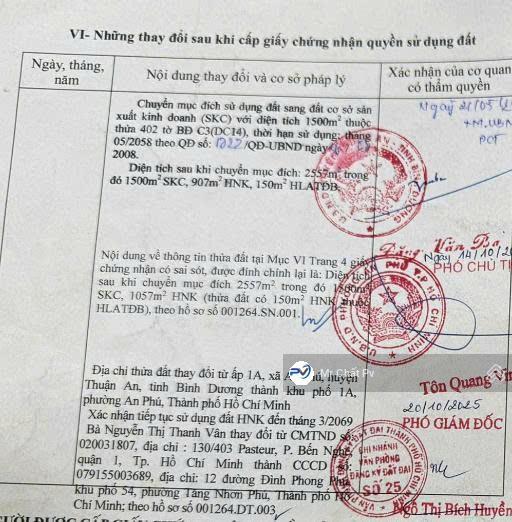 VI- Những thay đổi sau khi cấp giấy chứng nhận quyền sử dụng đất
Ngày, tháng, năm
Nội dung thay đổi và cơ sở pháp lý
Xác nhận của cơ quan
có thẩm quyền
Chuyển mục đích sử dụng đất sang đất cơ sở sản
xuất kinh doanh (SKC) với diện tích 1500m² thuộc
thửa 402 tờ BĐ C3(DC14), thời hạn sử dụng: tháng
05/2058 theo QĐ số: /QĐ-UBND ngày
2008.
Diện tích sau khi chuyển mục đích: 2557m² trong
đó 1500m² SKC, 907m² HNK, 150m² HLATĐB.
Ngày 21/05
TM.UBN
PCT
Đặng Văn Ba
Nội dung về thông tin thửa đất tại Mục VI Trang 4 giấy
chứng nhận có sai sót, được đính chính lại là: Diện tích
sau khi chuyển mục đích 2557m² trong đó 1500m²
SKC, 1057m² HNK (thửa đất có 150m² HNK thuộc
HLATĐB), theo hồ sơ số 001264.SN.001.
Ngày 14/10/20
PHÓ CHỦ TỊ
U.B.N.D PHƯỜNG AN PHÚ T.P HỒ CHÍ MINH
Tôn Quang Vin
Mr Chất Pv
Địa chỉ thửa đất thay đổi từ ấp 1A, xã An Phú, huyện
Thuận An, tỉnh Bình Dương thành khu phố 1A,
phường An Phú, Thành phố Hồ Chí Minh
Xác nhận tiếp tục sử dụng đất HNK đến tháng 3/2069
Bà Nguyễn Thị Thanh Vân thay đổi từ CMTND số
020031807, địa chỉ : 130/403 Pasteur, P. Bến Nghé,
quận 1, Tp. Hồ Chí Minh thành CCCD số
079155003689, địa chỉ: 12 đường Đình Phong Phú
khu phố 54, phường Tăng Nhơn Phú, Thành phố Hồ
Chí Minh; theo hồ sơ số 001264.DT.003
20/10/2025
PHÓ GIÁM ĐỐC
CHI NHÁNH
VĂN PHÒNG
ĐĂNG KÝ ĐẤT ĐAI
SỐ 25
Ngô Thị Bích Huyền